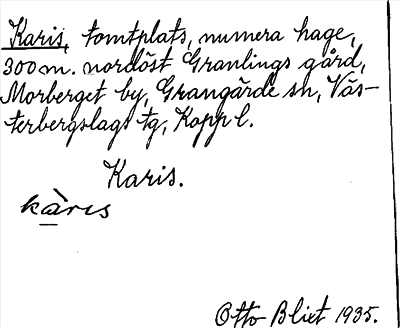 Karis, tomtplats, numera hage,
300 m. nordöst Granlings gård,
Morberget by, Grangärde sn, Väs-
terbergslags tg, Kopp l.
Karis.
kàris
Otto Blixt 1935.